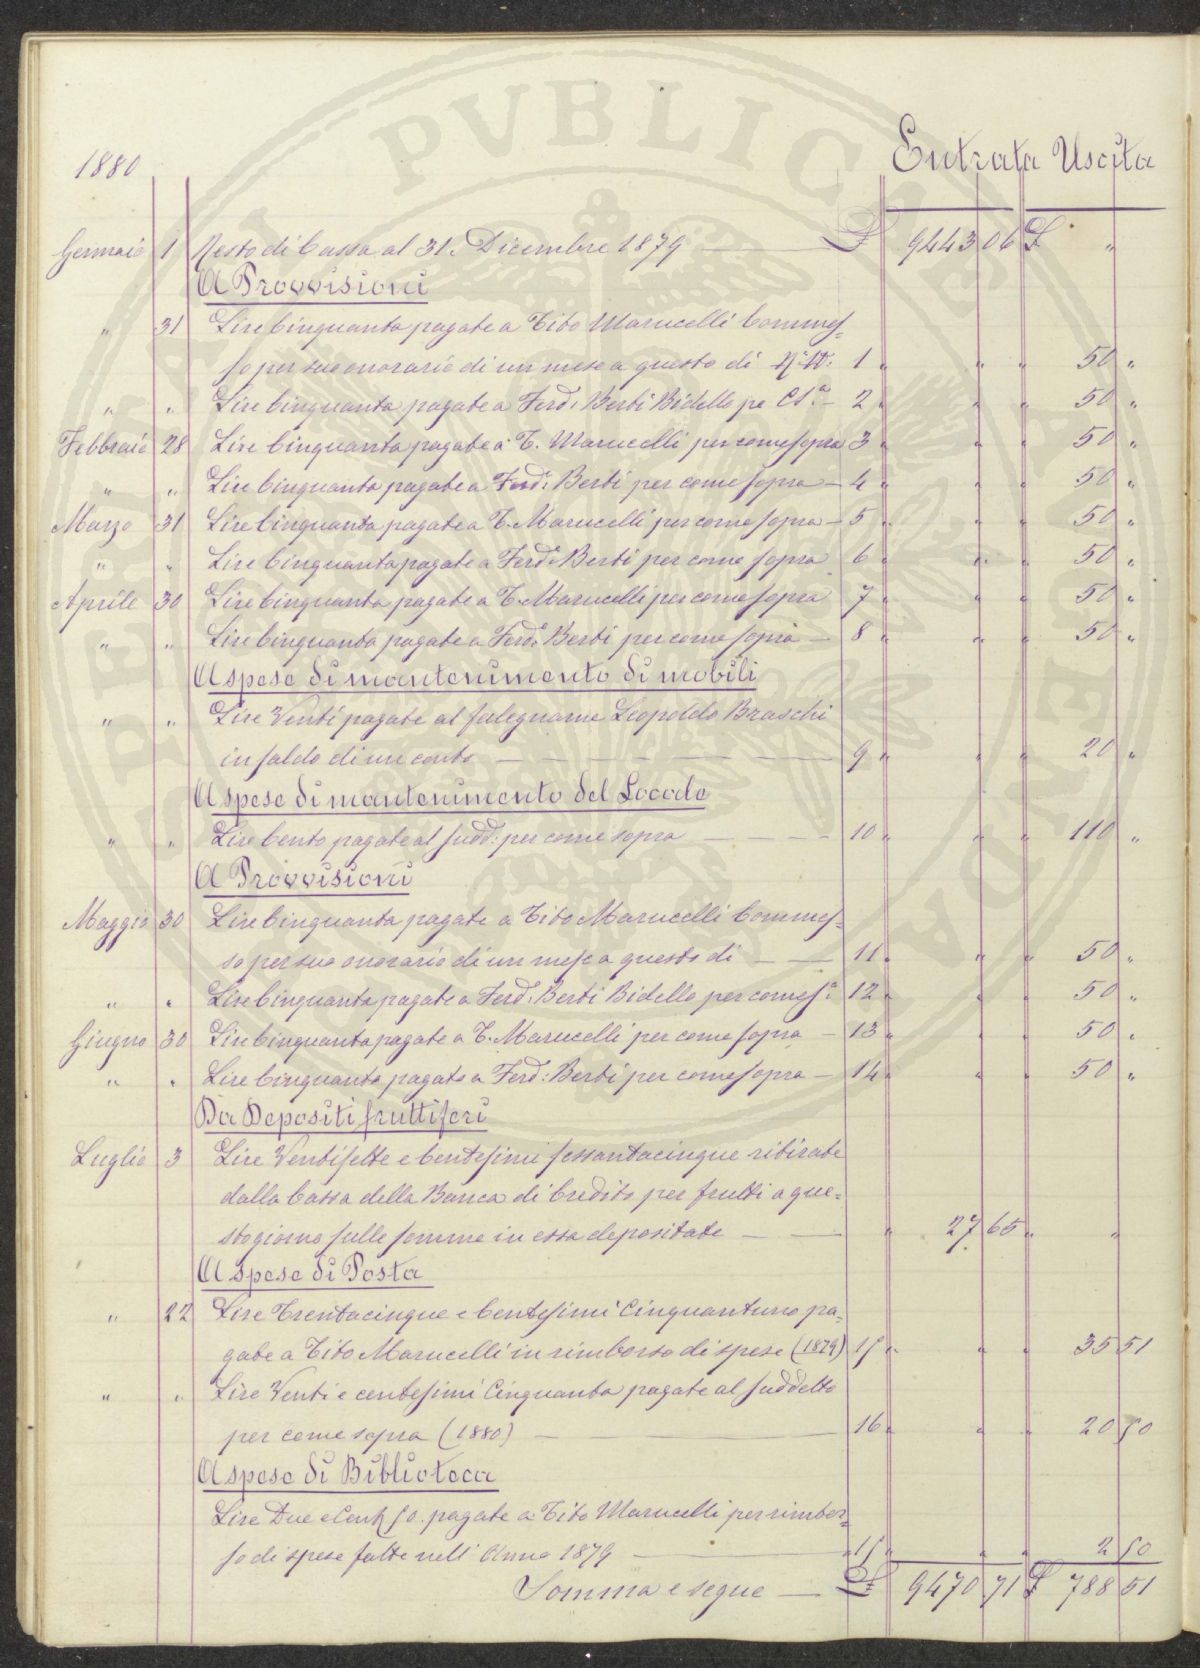 PERITAI PVBLICAE AVGENDAE
Entrata Uscita
1880
Gennaio 1 Resto di Cassa al 31. Dicembre 1879 — £ 9443 06 £ "
A Provvisioni
" 31 Lire Cinquanta pagate a Tito Marucelli Commes=
so per suo onorario di un mese a questo dì N.° 1 " " " 50 "
" " Lire Cinquanta pagate a Ferd: Berti Bidello pe CS.a — 2 " " " 50 "
Febbraio 28 Lire Cinquanta pagate a T. Marucelli per come sopra 3 " " " 50 "
" " Lire Cinquanta pagate a Ferd: Berti per come sopra — 4 " " " 50 "
Marzo 31 Lire Cinquanta pagate a T. Marucelli per come sopra — 5 " " " 50 "
" " Lire Cinquanta pagate a Ferd: Berti per come sopra 6 " " " 50 "
Aprile 30 Lire Cinquanta pagate a T. Marucelli per come sopra 7 " " " 50 "
" " Lire Cinquanta pagate a Ferd: Berti per come sopra — 8 " " " 50 "
A spese di mantenimento di mobili
" " Lire Venti pagate al falegname Leopoldo Braschi
in saldo di un conto — 9 " " " 20 "
A spese di mantenimento del Locale
" " Lire Cento pagate al sudd: per come sopra — 10 " " " 110 "
A Provvisioni
Maggio 30 Lire Cinquanta pagate a Tito Marucelli Commes=
so per suo onorario di un mese a questo dì — 11 " " " 50 "
" " Lire Cinquanta pagate a Ferd: Berti Bidello per come s.a 12 " " " 50 "
Giugno 30 Lire Cinquanta pagate a T. Marucelli per come sopra — 13 " " " 50 "
" " Lire Cinquanta pagate a Ferd: Berti per come sopra — 14 " " " 50 "
Da Depositi fruttiferi
Luglio 3 Lire Ventisette e Centesimi sessantacinque ritirate
dalla Cassa della Banca di Credito per frutti a que=
sto giorno sulle somme in essa depositate — " 27 65 " "
A spese di Posta
" 22 Lire Trentacinque e Centesimi Cinquantuno pa=
gate a Tito Marucelli in rimborso di spese (1879) 15 " " " 35 51
" " Lire Venti e centesimi Cinquanta pagate al suddetto
per come sopra (1880) — 16 " " " 20 50
A spese di Biblioteca
Lire Due e Cent 50. pagate a Tito Marucelli per rimbor=
so di spese fatte nell' Anno 1879 — " 15 " " " 2 50
Somma e segue — £ 9470 71 £ 788 51